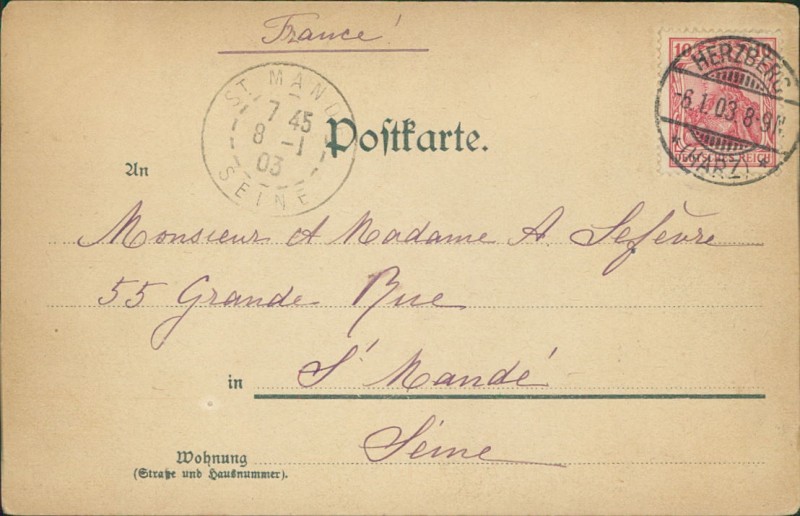 France!
10 10
HERZBERG
-6.1.03 8-9N.
* (HARZ) *
DEUTSCHES REICH
ST. MANDÉ
7 45
8 -1
03
SEINE
Postkarte.
An
Monsieur et Madame A. Lefèvre
55 Grande Rue
in St Mandé
Seine
Wohnung
(Straße und Hausnummer).